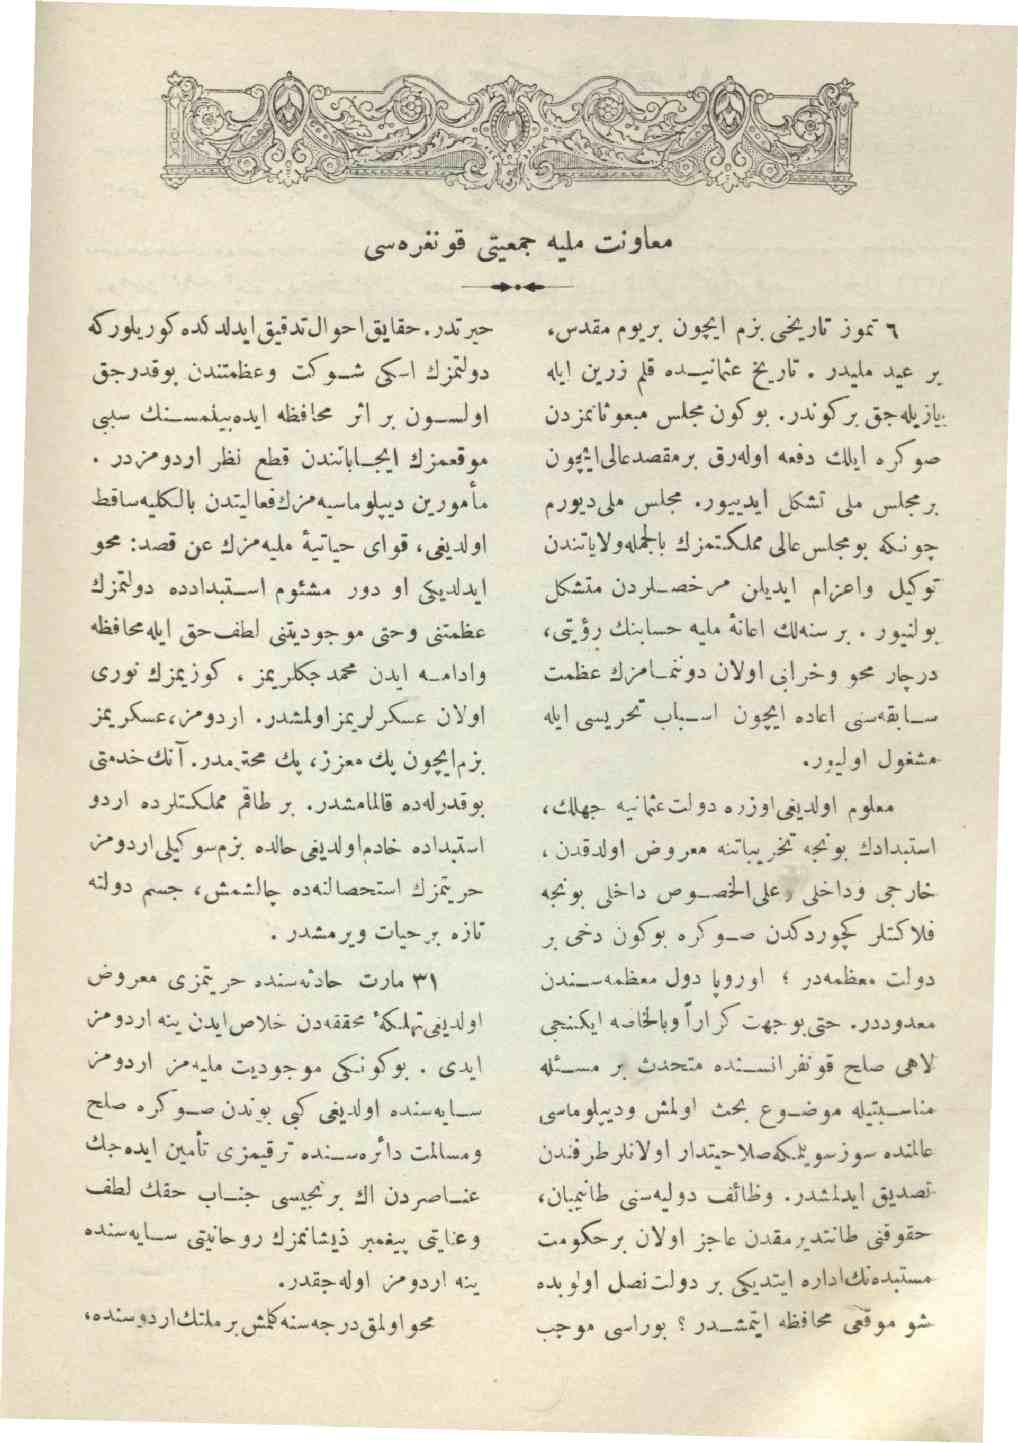 معاونت ملیه جمعیتی قونغره‌سی
٦ تموز تاریخی بزم ایچون بریوم مقدس،
بر عید ملیدر . تاریخ عثمانیـــده قلم زرین ایله
یازیله‌جق برکوندر. بوکون مجلس مبعوثانمزدن
صوکره ایلك دفعه اوله‌رق برمقصدعالی‌ایچون
برمجلس ملی تشکل ایدییور. مجلس ملی‌دیورم
چونکه بومجلس‌عالی مملکتمزك بالجمله‌ولایاتندن
توکیل واعزام ایدیلن مرخصــلردن متشکل
بولنیور . بر سنه‌لك اعانهٔ ملیه حسابنك رؤیتی،
درچار محو وخرابی اولان دونتمـامزك عظمت
ســابقه‌سنی اعاده ایچون اســباب تحریسی ایله
مشغول اولیور.
معلوم اولدیغی‌اوزره دولت‌عثمانیه جهلك،
استبدادك بونجه تخریباتنه معروض اولدقدن،
خارجی وداخلی وعلی‌الخصــوص داخلی بونجه
فلاکتلر کچوردکدن صــوکره بوکون دخی بر
دولت معظمه‌در ؛ اوروپا دول معظمه‌ســندن
معدوددر. حتی‌بوجهت کراراً وبالخاصه ایکنجی
لاهی صلح قونفرانســنده متحدث بر مســئله
مناســبتیله موضــوع بحث اولمش ودیپلوماسی
عالمنده سوزسویلمکه‌صلاحیتدار اولانلرطرفندن
تصدیق ایدلمشدر. وظائف دولیه‌سنی طانیمیان،
حقوقنی طانتدیرمقدن عاجز اولان برحکومت
مستبده‌نك‌اداره ایتدیکی بر دولت‌نصل اولوبده
شو موقعی محافظه ایتمشــدر ؟ بوراسی موجب
حیرتدر. حقایق‌احوال‌تدقیق‌ایدلدکده‌کوریلورکه
دولتمزك اسکی شــوکت وعظمتندن بوقدرجق
اولســون بر اثر محافظه ایده‌بیلمســنك سببی
موقعمزك ایجــاباتندن قطع نظر اردومزدر .
مأمورین دیپلوماسیه‌مزك‌فعالیتدن بالکلیه‌ساقط
اولدیغی، قوای حیاتیهٔ ملیه‌مزك عن قصد: محو
ایدلدیکی او دور مشئوم اســتبدادده دولتمزك
عظمتنی وحتی موجودیتنی لطف‌حق ایله‌محافظه
وادامــه ایدن محمدجکلریمز ، کوزیمزك نوری
اولان عسکرلریمزاولمشدر. اردومز،عسکریمز
بزم‌ایچون پك معزز، پك محترمدر. آنك‌خدمتی
بوقدرله‌ده قالمامشدر. بر طاقم مملکتلرده اردو
استبداده خادم‌اولدیغی‌حالده بزم‌سوکیلی‌اردومز
حریتمزك استحصالنه‌ده چالشمش، جسم دولته
تازه برحیات ویرمشدر .
٣١ مارت حادثه‌سنده حریتمزی معروض
اولدیغی‌تهلکهٔ محققه‌دن خلاص‌ایدن ینه اردومز
ایدی . بوکونکی موجودیت ملیه‌مز اردومز
ســایه‌سنده اولدیغی کبی بوندن صــوکره صلح
ومسالمت دائره‌ســنده ترقیمزی تأمین ایده‌جك
عنــاصردن اك برنجیسی جنــاب حقك لطف
وعنایتی پیغمبر ذیشانمزك روحانیتی ســایه‌سنده
ینه اردومز اوله‌جقدر.
محو اولمق‌درجه‌سنه‌کلمش‌برملتك‌اردوسنده،